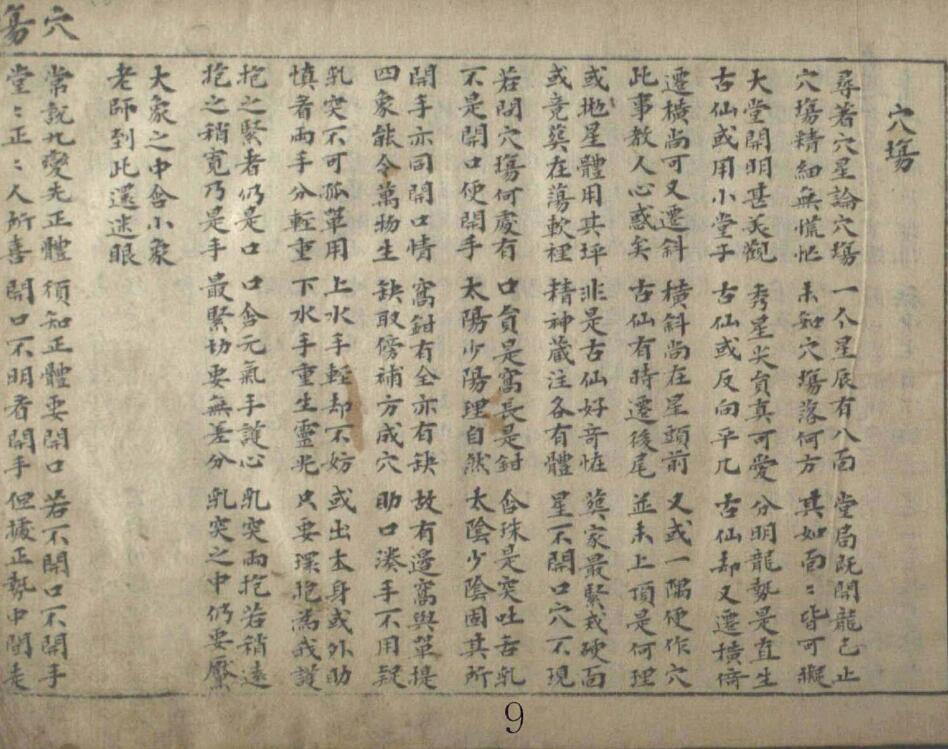 穴塲
穴塲
尋著穴星論穴塲 一个星辰有八面 堂局既開龍已止
穴塲精細無慌忙 未知穴塲落何方 其如面〻皆可擬
大堂開明甚美觀 秀星尖員真可愛 分明龍勢是直生
古仙或用小堂子 古仙或反向平凢 古仙却又遷橫倚
遷橫尚可又遷斜 橫斜尚在星頭前 又或一隅便作穴
此事教人心惑矣 古仙有時遷後尾 並未上頂是何理
或地星體用其坪 非是古仙好奇怪 塟家最緊戒硬面
或竟塟在蕩軟裡 精神藏注各有體 星不開口穴不現
若問穴塲何處有 口員是窩長是鉗 含珠是突吐舌乳
不是開口便開手 太陽少陽理自然 太陰少陰固其所
開手亦同開口情 窩鉗有全亦有缺 故有邉窩與單提
四象能令萬物生 缺取傍補方成穴 助口湊手不用疑
乳突不可孤單用 上水手輕却不妨 或出本身或外助
慎者兩手分輕重 下水手重生靈光 只要環抱為我護
抱之緊者仍是口 口含元氣手護心 乳突兩抱若稍遠
抱之稍寬乃是手 最緊切要無差分 乳突之中仍要壓
大象之中含小象
老師到此還迷眼
常説九變先正體 須知正體要開口 若不開口不開手
堂〻正〻人所喜 開口不明者開手 但據正勢中間走
9